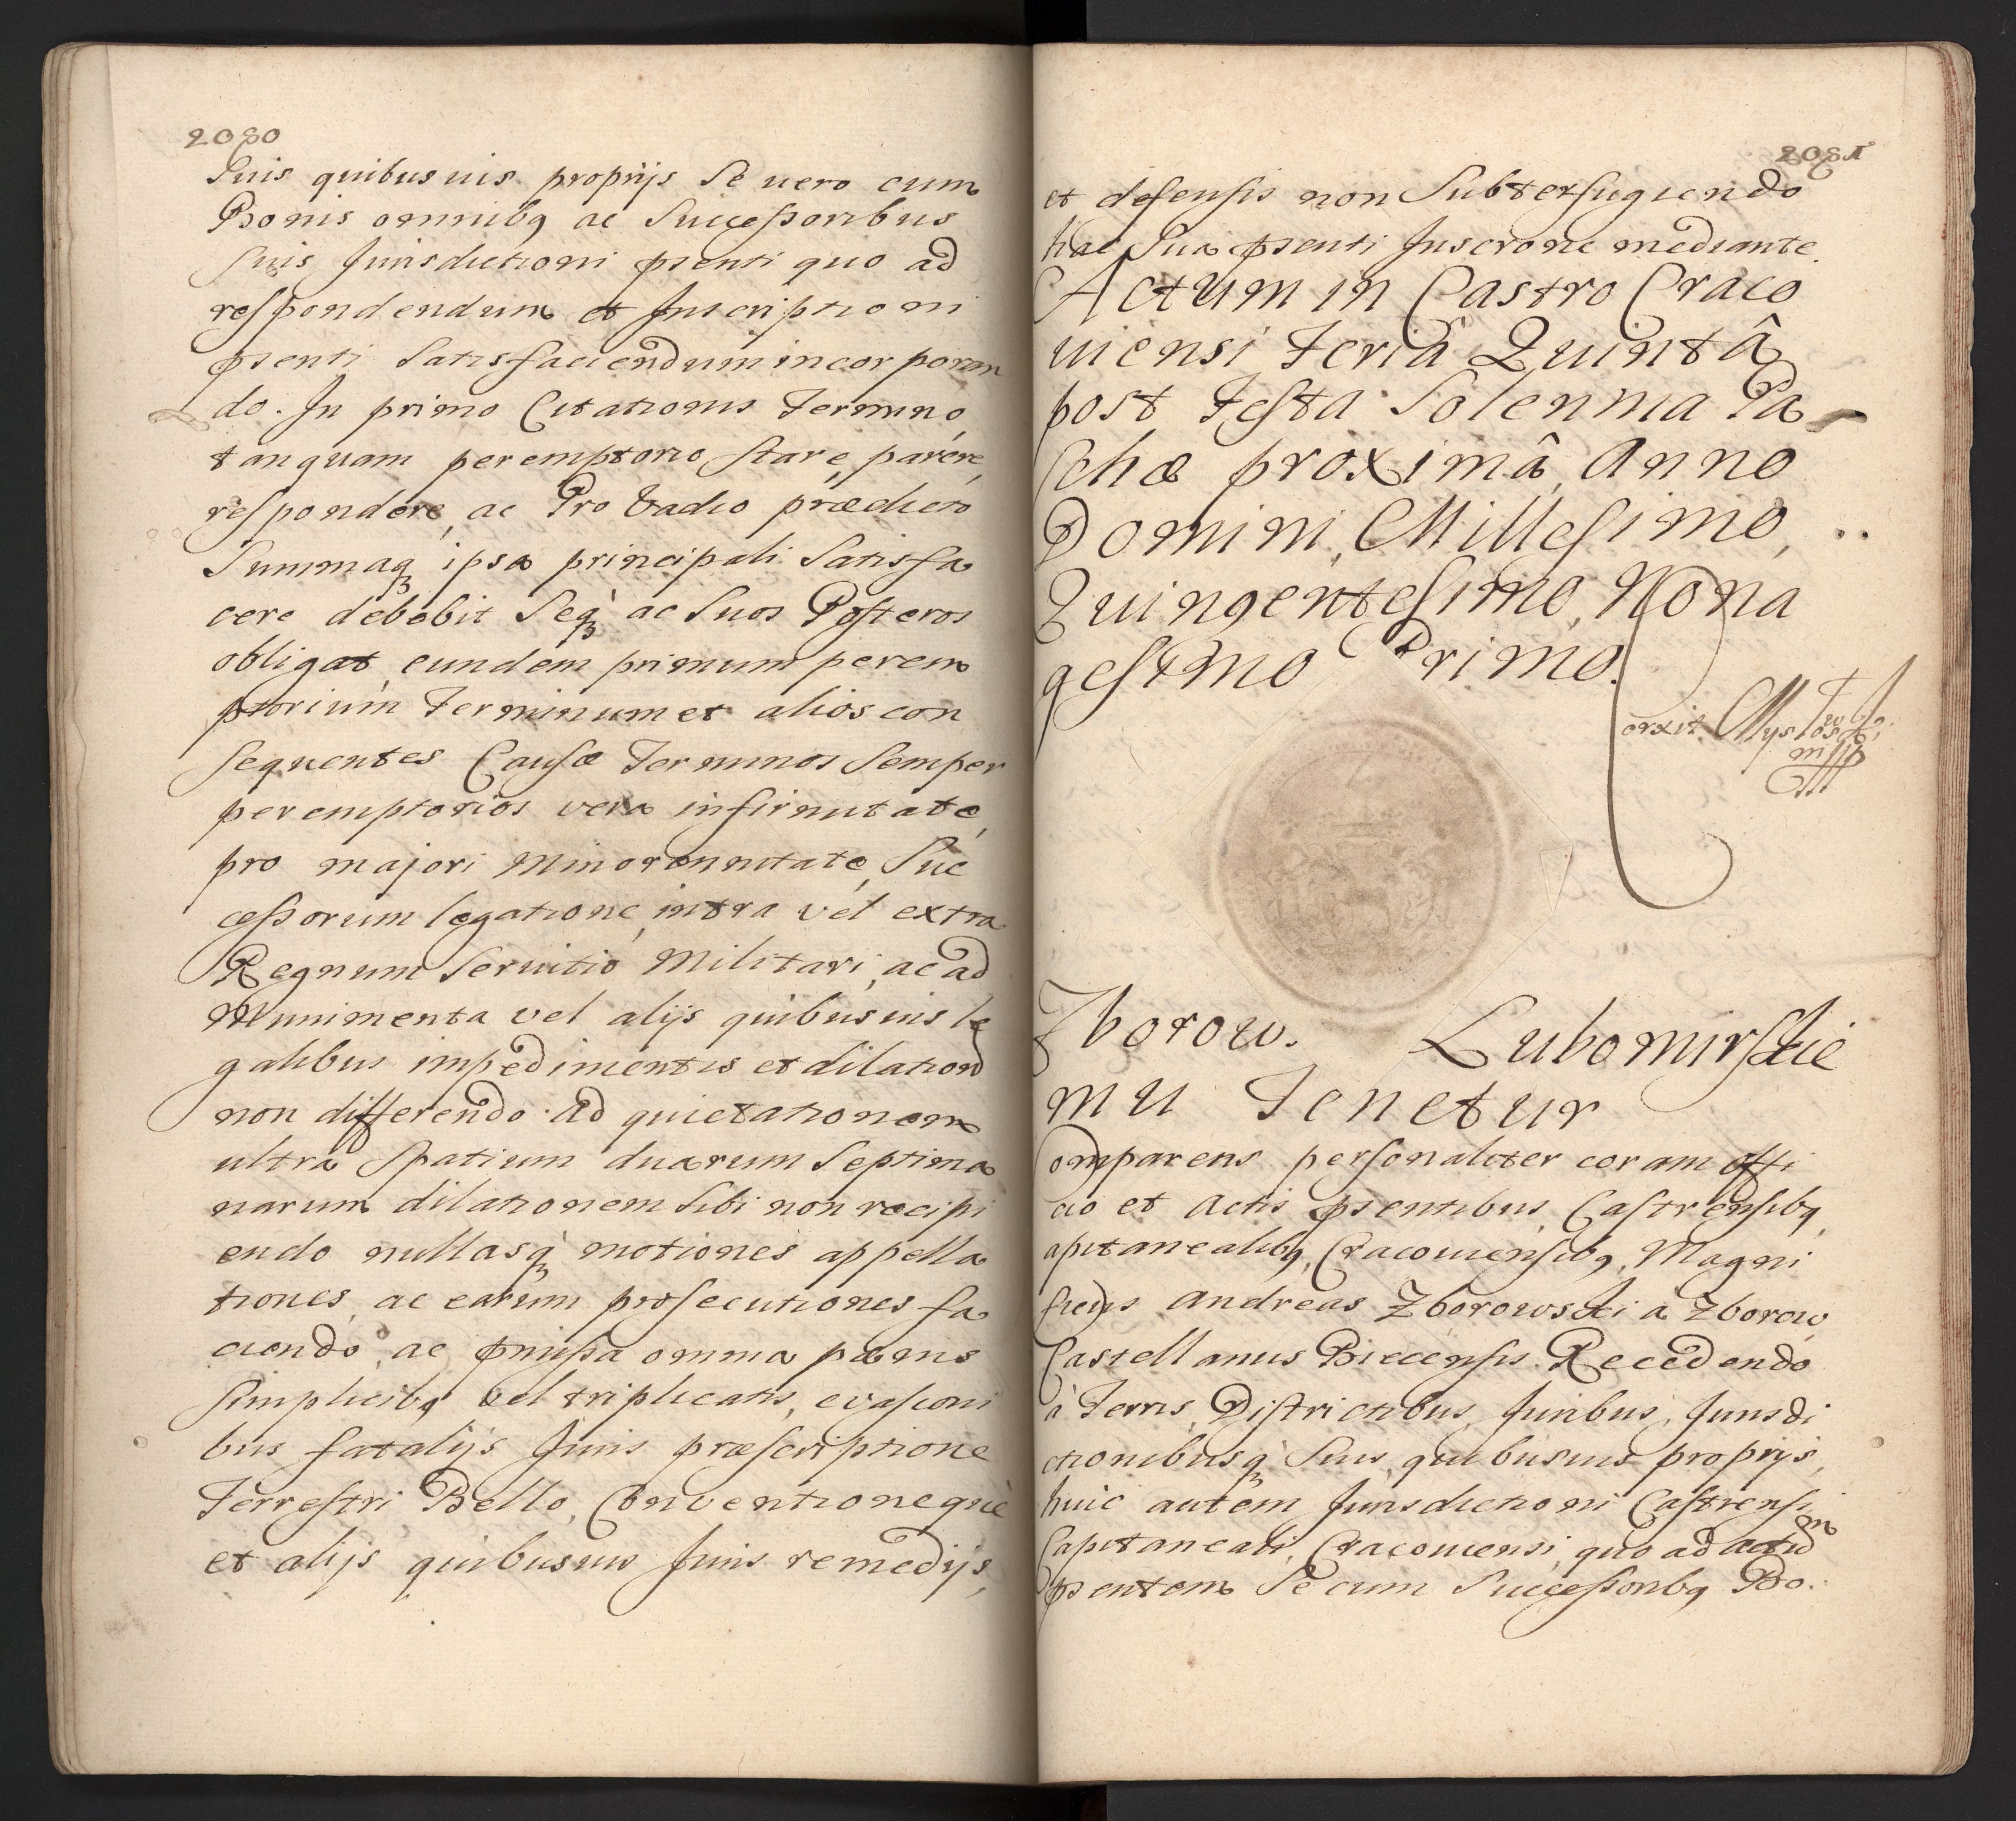 2080
Suis quibusuis proprijs Se uero cum
Bonis omnibq ac Successoribus
Suis Jurisdictioni pnsenti quo ad
respondendum et Inscriptioni
pnsenti Satisfaciendum incorporan
do. In primo Citationis Termino,
tanquam peremptorio stare, parere,
respondere, ac Pro Vadio prædicto
Summaq ipsa principali Satisfa
cere debebit Seq ac Suos Posteros
obligat, eundem primum perem
ptorium Terminum et alios con
sequentes Causæ Terminos Semper
peremptorios vera infirmitate,
pro majori Minorennitate, Suc
cessorum legatione, intra vel extra
Regnum Seruitio Militari, ac ad
Munimenta vel alijs quibusuis le
galibus impedimentis et dilation
non differendo. Ad quietationem
ultra Spatium duarum Septima
narum dilationem Sibi non recipi
endo nullasq motiones appella
tiones, ac earum prosecutiones fa
ciendo, ac pmissa omnia pœnis
Simplicibq vel triplicatis, evasioni
bus fatalijs Juris præscriptione
Terrestri Bello, Conventioneque
et alijs quibusuis Juris remedijs,
2081
et defensis non Subterfugiendo
hac Sua pnsenti Inscrone mediante.
Actum in Castro Craco
uiensi Feriâ Quintâ
post Festa Solennia Pa
schæ proximâ, Anno
Domini, Millesimo, ..
Quingentesimo, Nona
gesimo Primo.
orxit Mystowski
mpp
Zborow. Lubomirskie
mu Tenetur
Comparens personaliter coram offi
cio et Actis pnsentibus, Castrensibq,
apitanealibq, Cracouiensibq, Magni
ficus Andreas Zborowski a Zborow
Castellanus Biecensis Recedendo
à Terris, Districtibus, Juribus, Jurisdi
ctionibusq Suis quibusuis proprijs,
huic autem Jurisdictioni Castrensi
Capitaneali, Cracouiensi, quo ad actum
pnsentem Se cum Successoribq Bo.